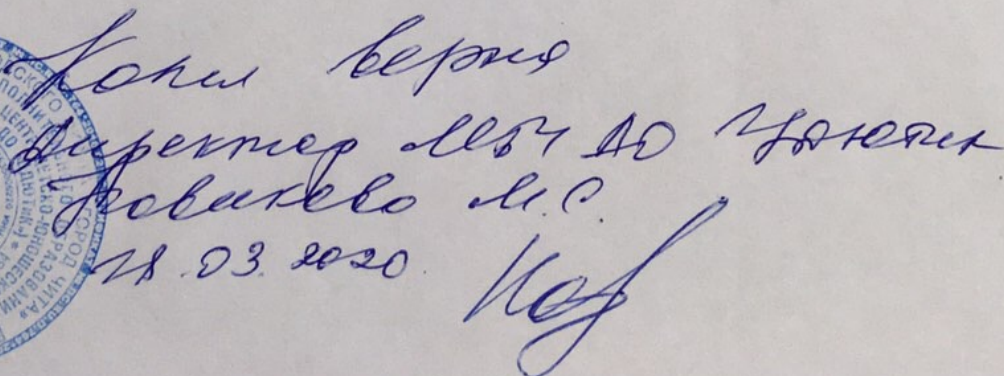 Копия верна
Директор МБУ ДО ЦДЮТиК
Новикова М.С.
18.03.2020
ГОРОД ЧИТА»